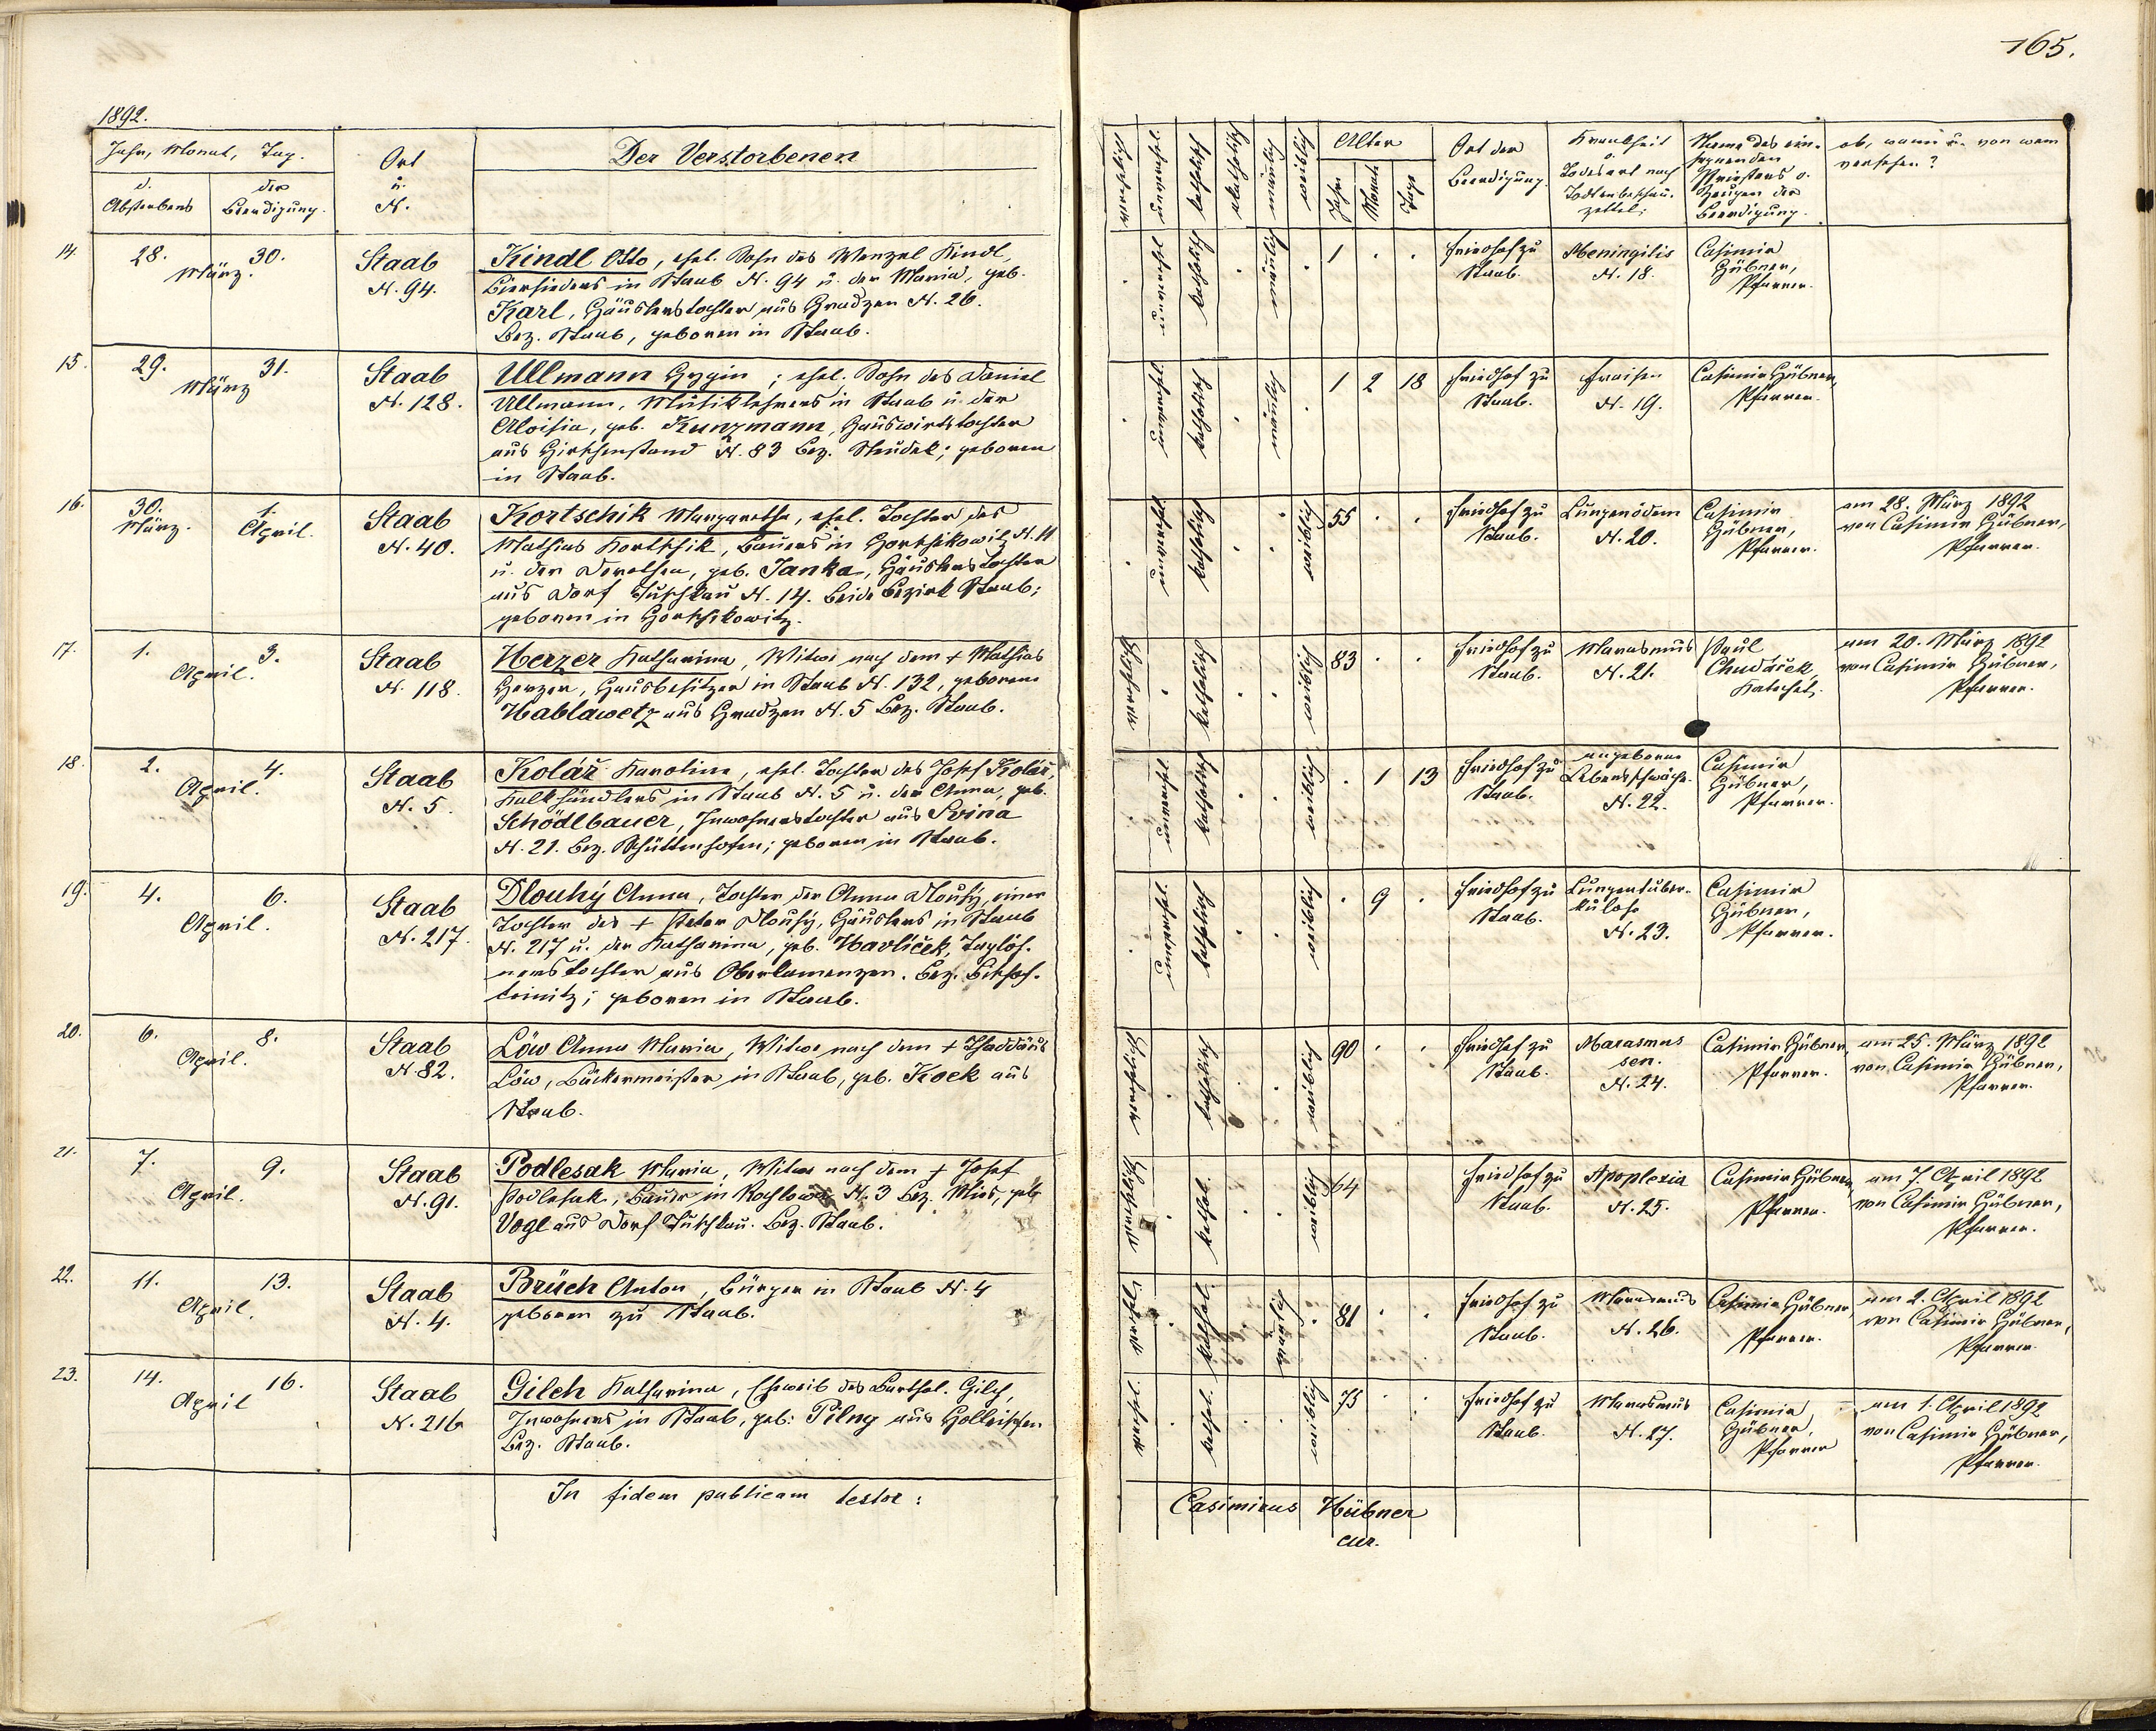 165.
1892.
Jahr, Monat, Tag.
d.
Absterbens
der
Beerdigung.
Ort
u.
N.
Der Verstorbenen
verehlicht
unverehel.
katholisch
akatholisch
männlich
weiblich
Alter
Jahr
Monate
Tage
Ort der
Beerdigung.
Krankheit
o.
Todesart nach
Todtenbeschau-
zettel.
Name des ein-
segnenden
Priesters o.
Zeugen der
Beerdigung.
ob, wann u. von wem
versehen?
14.
28.
30.
März.
Staab
N. 94.
Kindl Otto, ehel. Sohn des Wenzel Kindl,
Biersieders in Staab N. 94 u. der Maria, geb.
Karl, Häuslerstochter aus Gradzen N. 26.
Bez. Staab, geboren in Staab.
unverehl
katholisch
männlich
1
Friedhof zu
Staab.
Meningitis
N. 18.
Casimir
Hübner,
Pfarrer.
15.
29.
31.
März
Staab
N. 128.
Ullmann Hygin; ehel. Sohn des Daniel
Ullmann, Musiklehrers in Staab u. der
Aloisia, geb. Kunzmann, Hauswirthstochter
aus Hirschenstand N. 83 Bez. Neudek; geboren
in Staab.
unverehel.
katholisch
männlich
1 2 18
Friedhof zu
Staab.
Fraisen
N. 19.
Casimir Hübner,
Pfarrer.
16.
30.
März.
1.
April.
Staab
N. 40.
Kortschik Margaretha, ehel. Tochter des
Mathias Kortschik, Bauers in Hortschikowitz N. 11
u. der Dorothea, geb. Janka, Häuslerstochter
aus Dorf Tuschkau N. 14. beide Bezirk Staab;
geboren in Hortschikowitz.
unverehel.
katholisch
weiblich
55
Friedhof zu
Staab.
Lungenödem
N. 20.
Casimir
Hübner,
Pfarrer.
am 28. März 1892
von Casimir Hübner,
Pfarrer.
17.
1.
3.
April.
Staab
N. 118.
Herzer Katharina, Witwe nach dem + Mathias
Herzer, Hausbesitzer in Staab N. 132, geborene
Hablawetz aus Gradzen N. 5 Bez. Staab.
verehlicht
katholisch
weiblich
83
Friedhof zu
Staab.
Marasmus
N. 21.
Paul
Chudáček,
Katechet.
am 20. März 1892
von Casimir Hübner,
Pfarrer.
18.
2.
4.
April.
Staab
N. 5.
Kolář Karolina, ehel. Tochter des Josef Kolář,
Kalkhändlers in Staab N. 5 u. der Anna, geb.
Schödlbauer, Inwohnerstochter aus Svina
N. 21. Bez. Schüttenhofen; geboren in Staab.
unverehel
katholisch
weiblich
1 13
Friedhof zu
Staab.
angeborene
Lebensschwäche
N. 22.
Casimir
Hübner,
Pfarrer.
19.
4.
6.
April.
Staab
N. 217.
Dlouhý Anna, Tochter der Anna Dlouhý, einer
Tochter des + Peter Dlouhý, Häuslers in Staab
N. 217 u. der Katharina, geb. Havlíček, Taglöh-
nerstochter aus Oberkamenzen. Bez. Bischof-
teinitz; geboren in Staab.
unverehel.
katholisch
weiblich
9
Friedhof zu
Staab.
Lungentuber-
kulose
N. 23.
Casimir
Hübner,
Pfarrer.
20.
6.
8.
April.
Staab
N. 82.
Löw Anna Maria, Witwe nach dem + Thaddäus
Löw, Bäckermeister in Staab, geb. Kock aus
Staab.
verehlicht
katholisch
weiblich
90
Friedhof zu
Staab.
Marasmus
sen.
N. 24.
Casimir Hübner,
Pfarrer.
am 25. März 1892
von Casimir Hübner,
Pfarrer.
21.
7.
9.
April.
Staab
N. 91.
Podlesak Maria, Witwe nach dem + Josef
Podlesak, Bauer in N. 3 Bez. Mies, geb.
Vogl aus Dorf Tuschkau. Bez. Staab.
verehlicht
kathol.
weiblich
64
Friedhof zu
Staab.
Apoplexia
N. 25.
Casimir Hübner,
Pfarrer.
am 7. April 1892
von Casimir Hübner,
Pfarrer.
22.
11.
13.
April.
Staab
N. 4.
Brüch Anton, Bürger in Staab N. 4
geboren zu Staab.
verehl.
kathol.
männlich
81
Friedhof zu
Staab.
Marasmus
N. 26.
Casimir Hübner,
Pfarrer.
am 2. April 1892
von Casimir Hübner,
Pfarrer.
23.
14.
16.
April
Staab
N. 216
Gilch Katharina, Eheweib des Barthol. Gilch,
Inwohners in Staab, geb. Pilny aus Holleischen
Bez. Staab.
verehel.
kathol.
weiblich
75
Friedhof zu
Staab.
Marasmus
N. 27.
Casimir
Hübner,
Pfarrer
am 1. April 1892
von Casimir Hübner,
Pfarrer.
In fidem publicam testor:
Casimirus Hübner
cur.